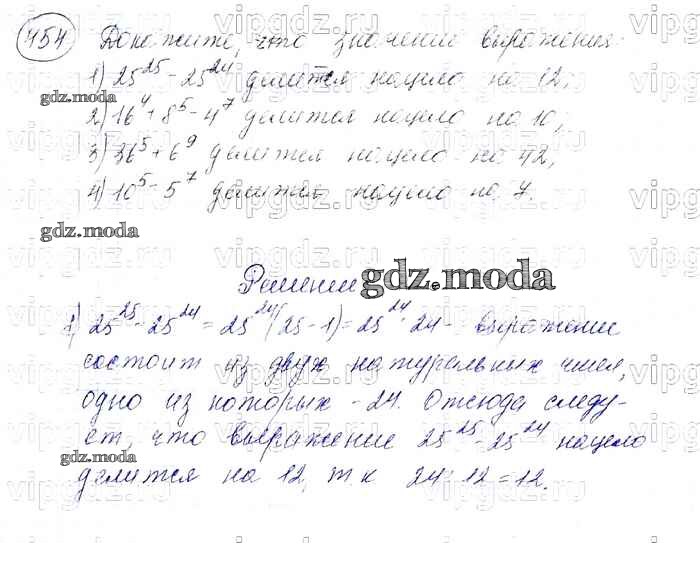 454 Докажите, что значение выражения:
1) 25^25 - 25^24 делится нацело на 12;
2) 16^4 + 8^5 - 4^7 делится нацело на 10;
3) 36^5 + 6^9 делится нацело на 42;
4) 10^5 - 5^7 делится нацело на 7.
gdz.moda
gdz.moda
Решение
gdz.moda
1) 25^25 - 25^24 = 25^24 (25 - 1) = 25^24 · 24 - выражение
состоит из двух натуральных чисел,
одно из которых - 24. Отсюда следу-
ет, что выражение 25^25 - 25^24 нацело
gdz.moda
делится на 12, т.к 24 : 12 = 12.